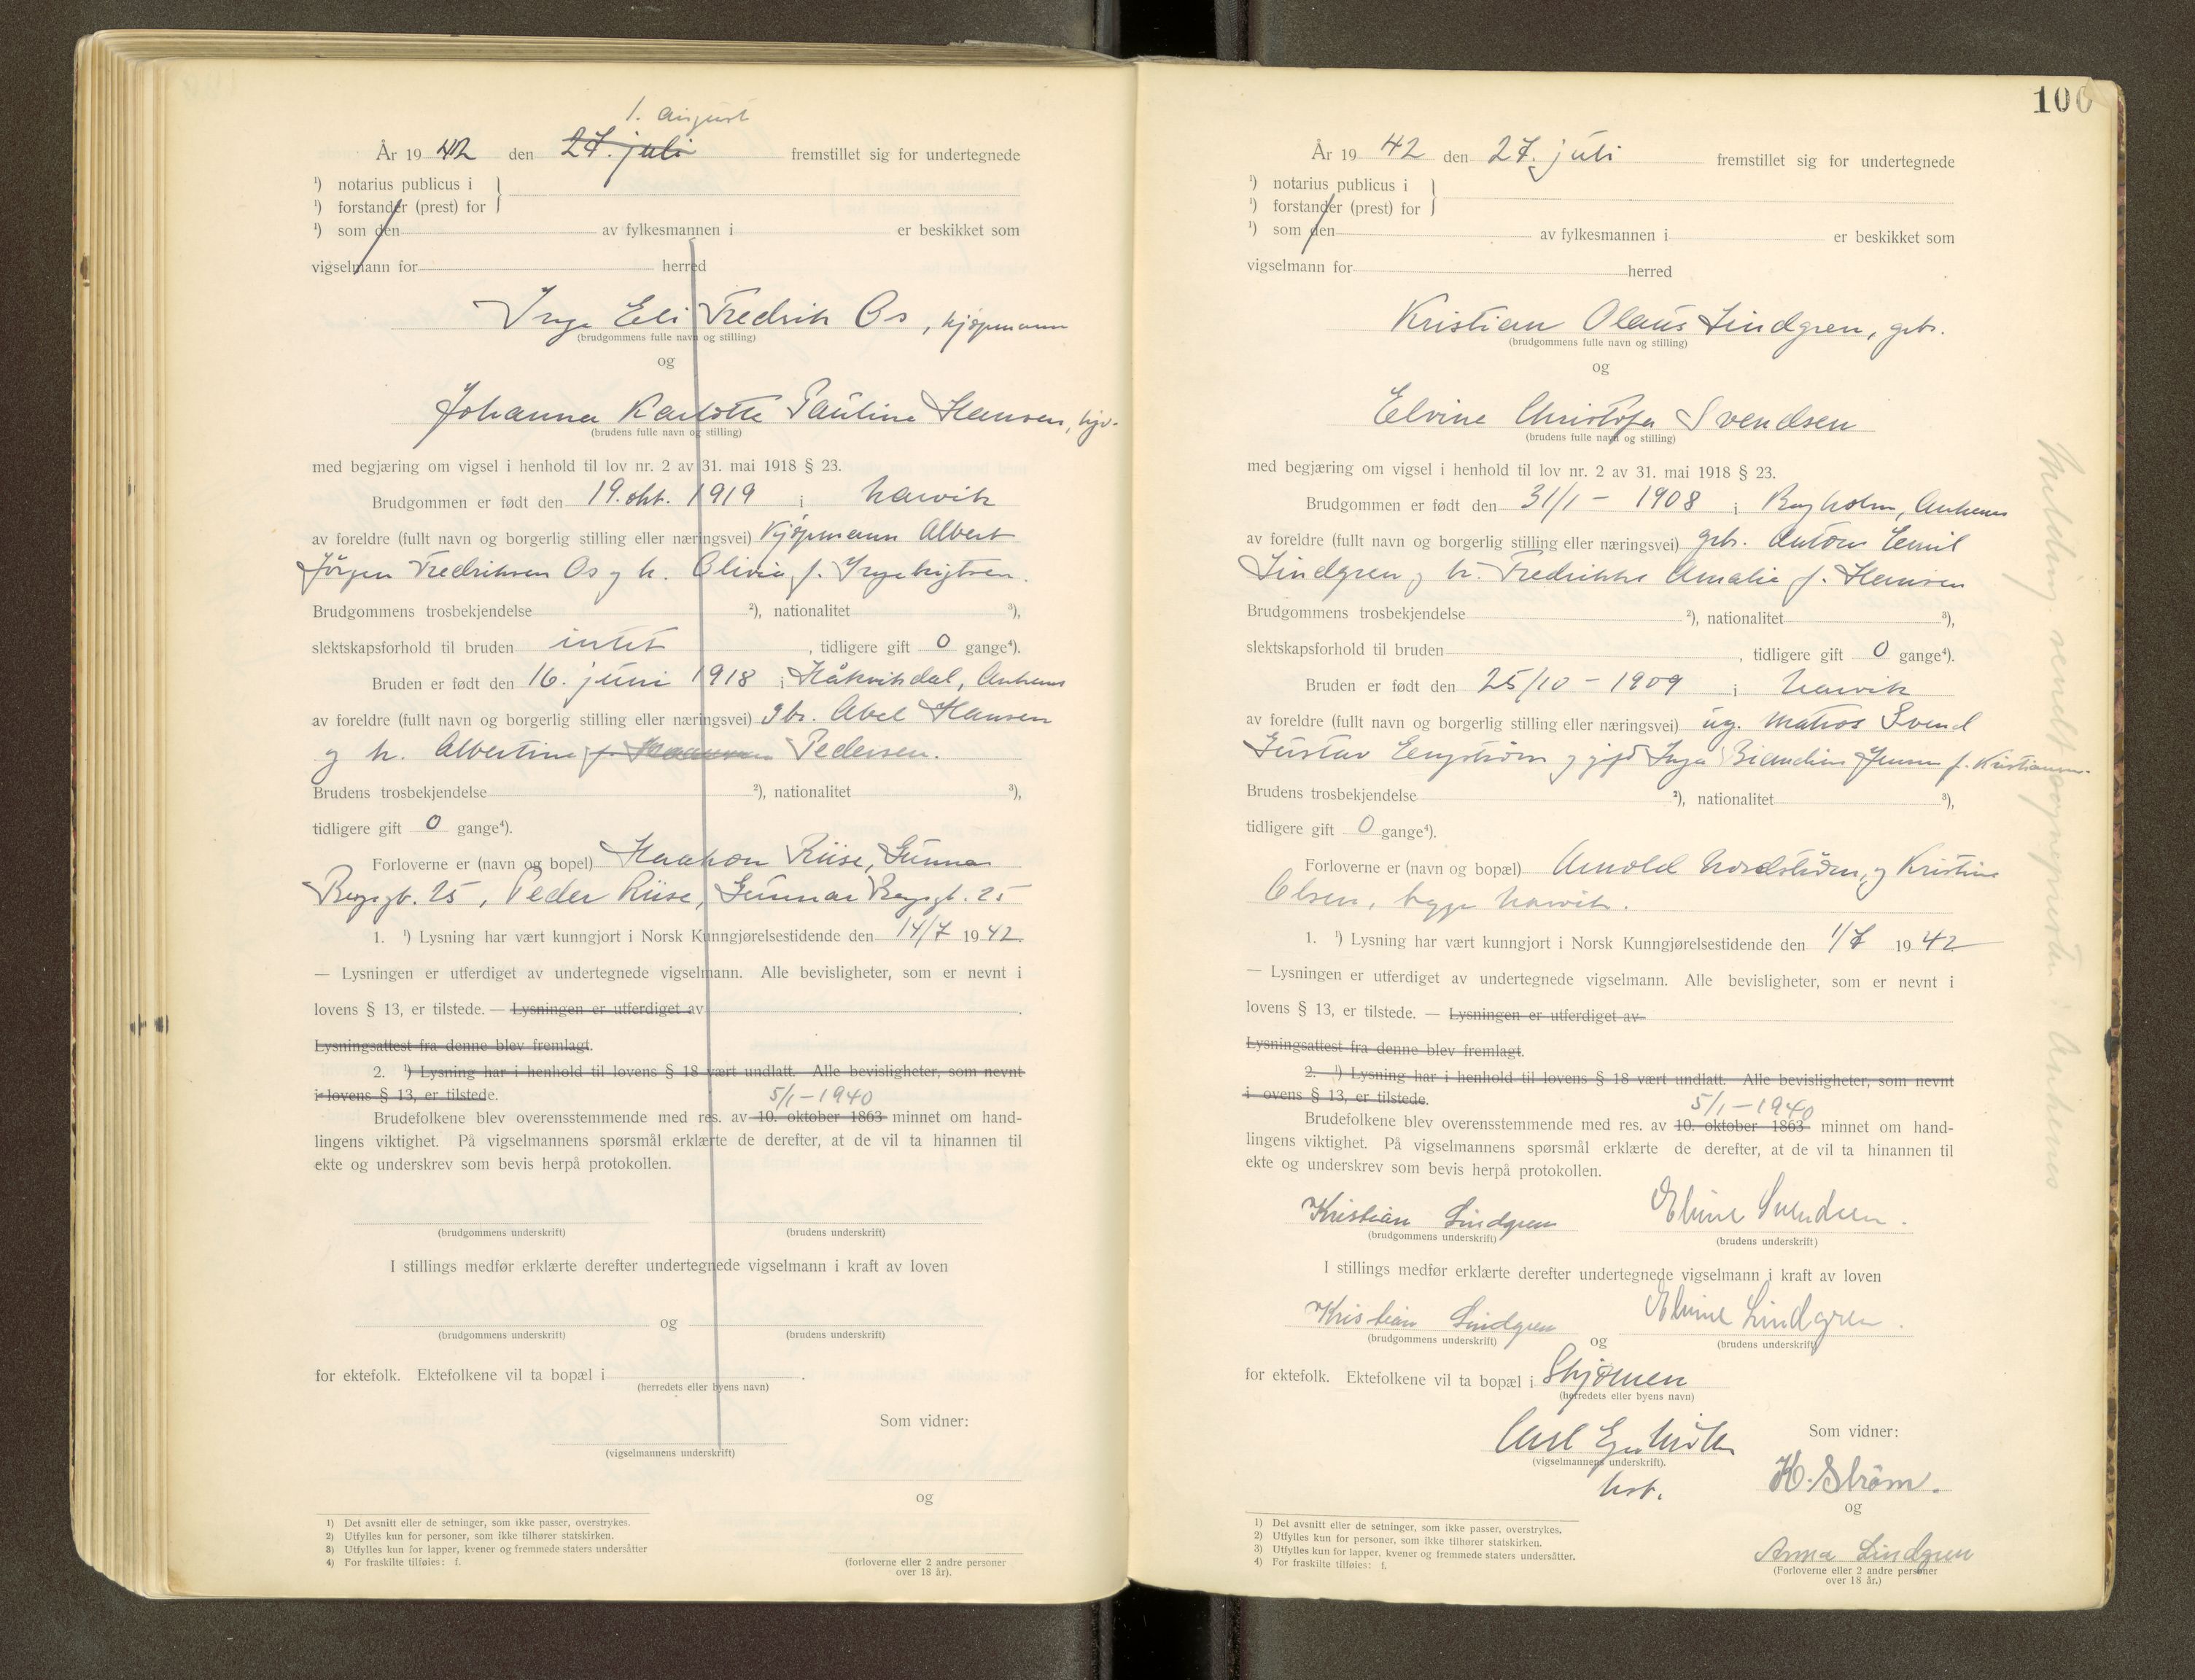 1. august
År 19 42 den 27. juli fremstillet sig for undertegnede
¹) notarius publicus i
¹) forstander (prest) for
¹) som den av fylkesmannen i er beskikket som
vigselmann for herred
Inge Eli Fredrik Os, kjøpmann
(brudgommens fulle navn og stilling)
og
Johanna Karlotte Pauline Hansen,
(brudens fulle navn og stilling)
med begjæring om vigsel i henhold til lov nr. 2 av 31. mai 1918 § 23.
Brudgommen er født den 19. okt. 1919 i Narvik
av foreldre (fullt navn og borgerlig stilling eller næringsvei) kjøpmann Albert
Jörgen Fredriksen Os og h. Olivia f. Ingebrigtsen.
Brudgommens trosbekjendelse ²), nationalitet ³),
slektskapsforhold til bruden intet, tidligere gift 0 gange⁴).
Bruden er født den 16. juni 1918 i Håkvikdal, Ankenes
av foreldre (fullt navn og borgerlig stilling eller næringsvei) gbr. Abel Hansen
og h. Albertine f. Pedersen.
Brudens trosbekjendelse ²), nationalitet ³),
tidligere gift 0 gange⁴).
Forloverne er (navn og bopel) Haakon Riise, Gunnar
Bergsgt. 25, Peder Riise, Gunnar Bergsgt. 25
1. ¹) Lysning har vært kunngjort i Norsk Kunngjørelsestidende den 14/7 1942.
— Lysningen er utferdiget av undertegnede vigselmann. Alle bevisligheter, som er nevnt i
lovens § 13, er tilstede. — Lysningen er utferdiget av
Lysningsattest fra denne blev fremlagt.
2. ¹) Lysning har i henhold til lovens § 18 vært undlatt. Alle bevisligheter, som nevnt
i lovens § 13, er tilstede.
5/1 - 1940
Brudefolkene blev overensstemmende med res. av 10. oktober 1863 minnet om hand-
lingens viktighet. På vigselmannens spørsmål erklærte de derefter, at de vil ta hinannen til
ekte og underskrev som bevis herpå protokollen.
(brudgommens underskrift) (brudens underskrift)
I stillings medfør erklærte derefter undertegnede vigselmann i kraft av loven
og
(brudgommens underskrift) (brudens underskrift)
for ektefolk. Ektefolkene vil ta bopæl i .
(herredets eller byens navn)
Som vidner:
(vigselmannens underskrift)
og
1) Det avsnitt eller de setninger, som ikke passer, overstrykes.
2) Utfylles kun for personer, som ikke tilhører statskirken.
3) Utfylles kun for lapper, kvener og fremmede staters undersåtter
4) For fraskilte tilføies: f.
(forloverne eller 2 andre personer
over 18 år).
100
År 19 42 den 27. juli fremstillet sig for undertegnede
¹) notarius publicus i
¹) forstander (prest) for
¹) som den av fylkesmannen i er beskikket som
vigselmann for herred
Kristian Olaus Lindgren, gbr.
(brudgommens fulle navn og stilling)
og
Elvine Christofa Svendsen
(brudens fulle navn og stilling)
med begjæring om vigsel i henhold til lov nr. 2 av 31. mai 1918 § 23.
Brudgommen er født den 31/1 - 1908 i Ankenes
av foreldre (fullt navn og borgerlig stilling eller næringsvei) gbr. Anton Emil
Lindgren og h. Fredrikke Amalie f. Hansen
Brudgommens trosbekjendelse ²), nationalitet ³),
slektskapsforhold til bruden , tidligere gift 0 gange⁴).
Bruden er født den 25/10 - 1909 i Narvik
av foreldre (fullt navn og borgerlig stilling eller næringsvei) ug. matros Svend
Gustav Engström og gift Inga Jensen f. Kristiansen.
Brudens trosbekjendelse ²), nationalitet ³),
tidligere gift 0 gange⁴).
Forloverne er (navn og bopæl) Arnold Nordström, og Kristine
Olsen, begge Narvik.
1. ¹) Lysning har vært kunngjort i Norsk Kunngjørelsestidende den 1/7 1942
— Lysningen er utferdiget av undertegnede vigselmann. Alle bevisligheter, som er nevnt i
lovens § 13, er tilstede. — Lysningen er utferdiget av
Lysningsattest fra denne blev fremlagt.
2. ¹) Lysning har i henhold til lovens § 18 vært undlatt. Alle bevisligheter, som nevnt
i ovens § 13, er tilstede.
5/1 - 1940
Brudefolkene blev overensstemmende med res. av 10. oktober 1863 minnet om hand-
lingens viktighet. På vigselmannens spørsmål erklærte de derefter, at de vil ta hinannen til
ekte og underskrev som bevis herpå protokollen.
Kristian Lindgren Elvine Svendsen.
(brudgommens underskrift) (brudens underskrift)
I stillings medfør erklærte derefter undertegnede vigselmann i kraft av loven
Kristian Lindgren og Elvine Lindgren.
(brudgommens underskrift) (brudens underskrift)
for ektefolk. Ektefolkene vil ta bopæl i Skjomen
(herredets eller byens navn)
Som vidner:
Carl
(vigselmannens underskrift).
K. Ström.
og
Anna Lindgren
(Forloverne eller 2 andre personer
over 18 år.)
1) Det avsnitt eller de setninger, som ikke passer, overstrykes.
2) Utfylles kun for personer, som ikke tilhører statskirken.
3) Utfylles kun for lapper, kvener og fremmede staters undersåtter.
4) For fraskilte tilføies: f.
Melding sendt sognepresten i Ankenes